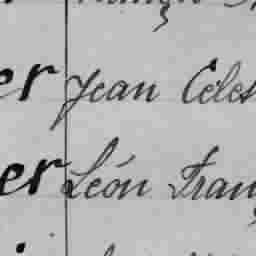 er Jean Celes
er Léon Fran